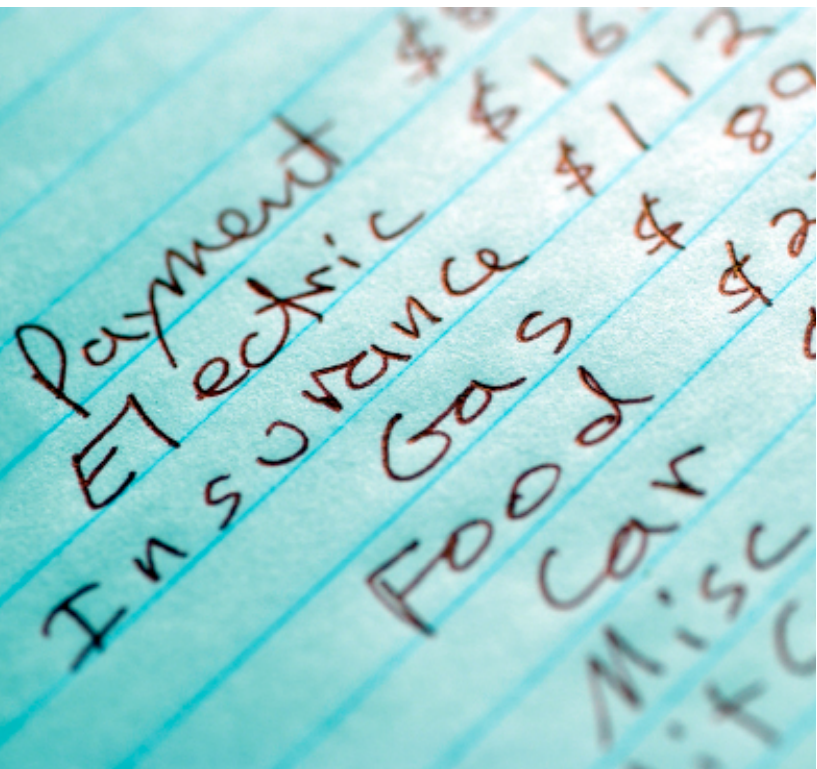 Payment $8
Electric $16
Insurance $112
Gas $ 89
Food $2
Car
Misc